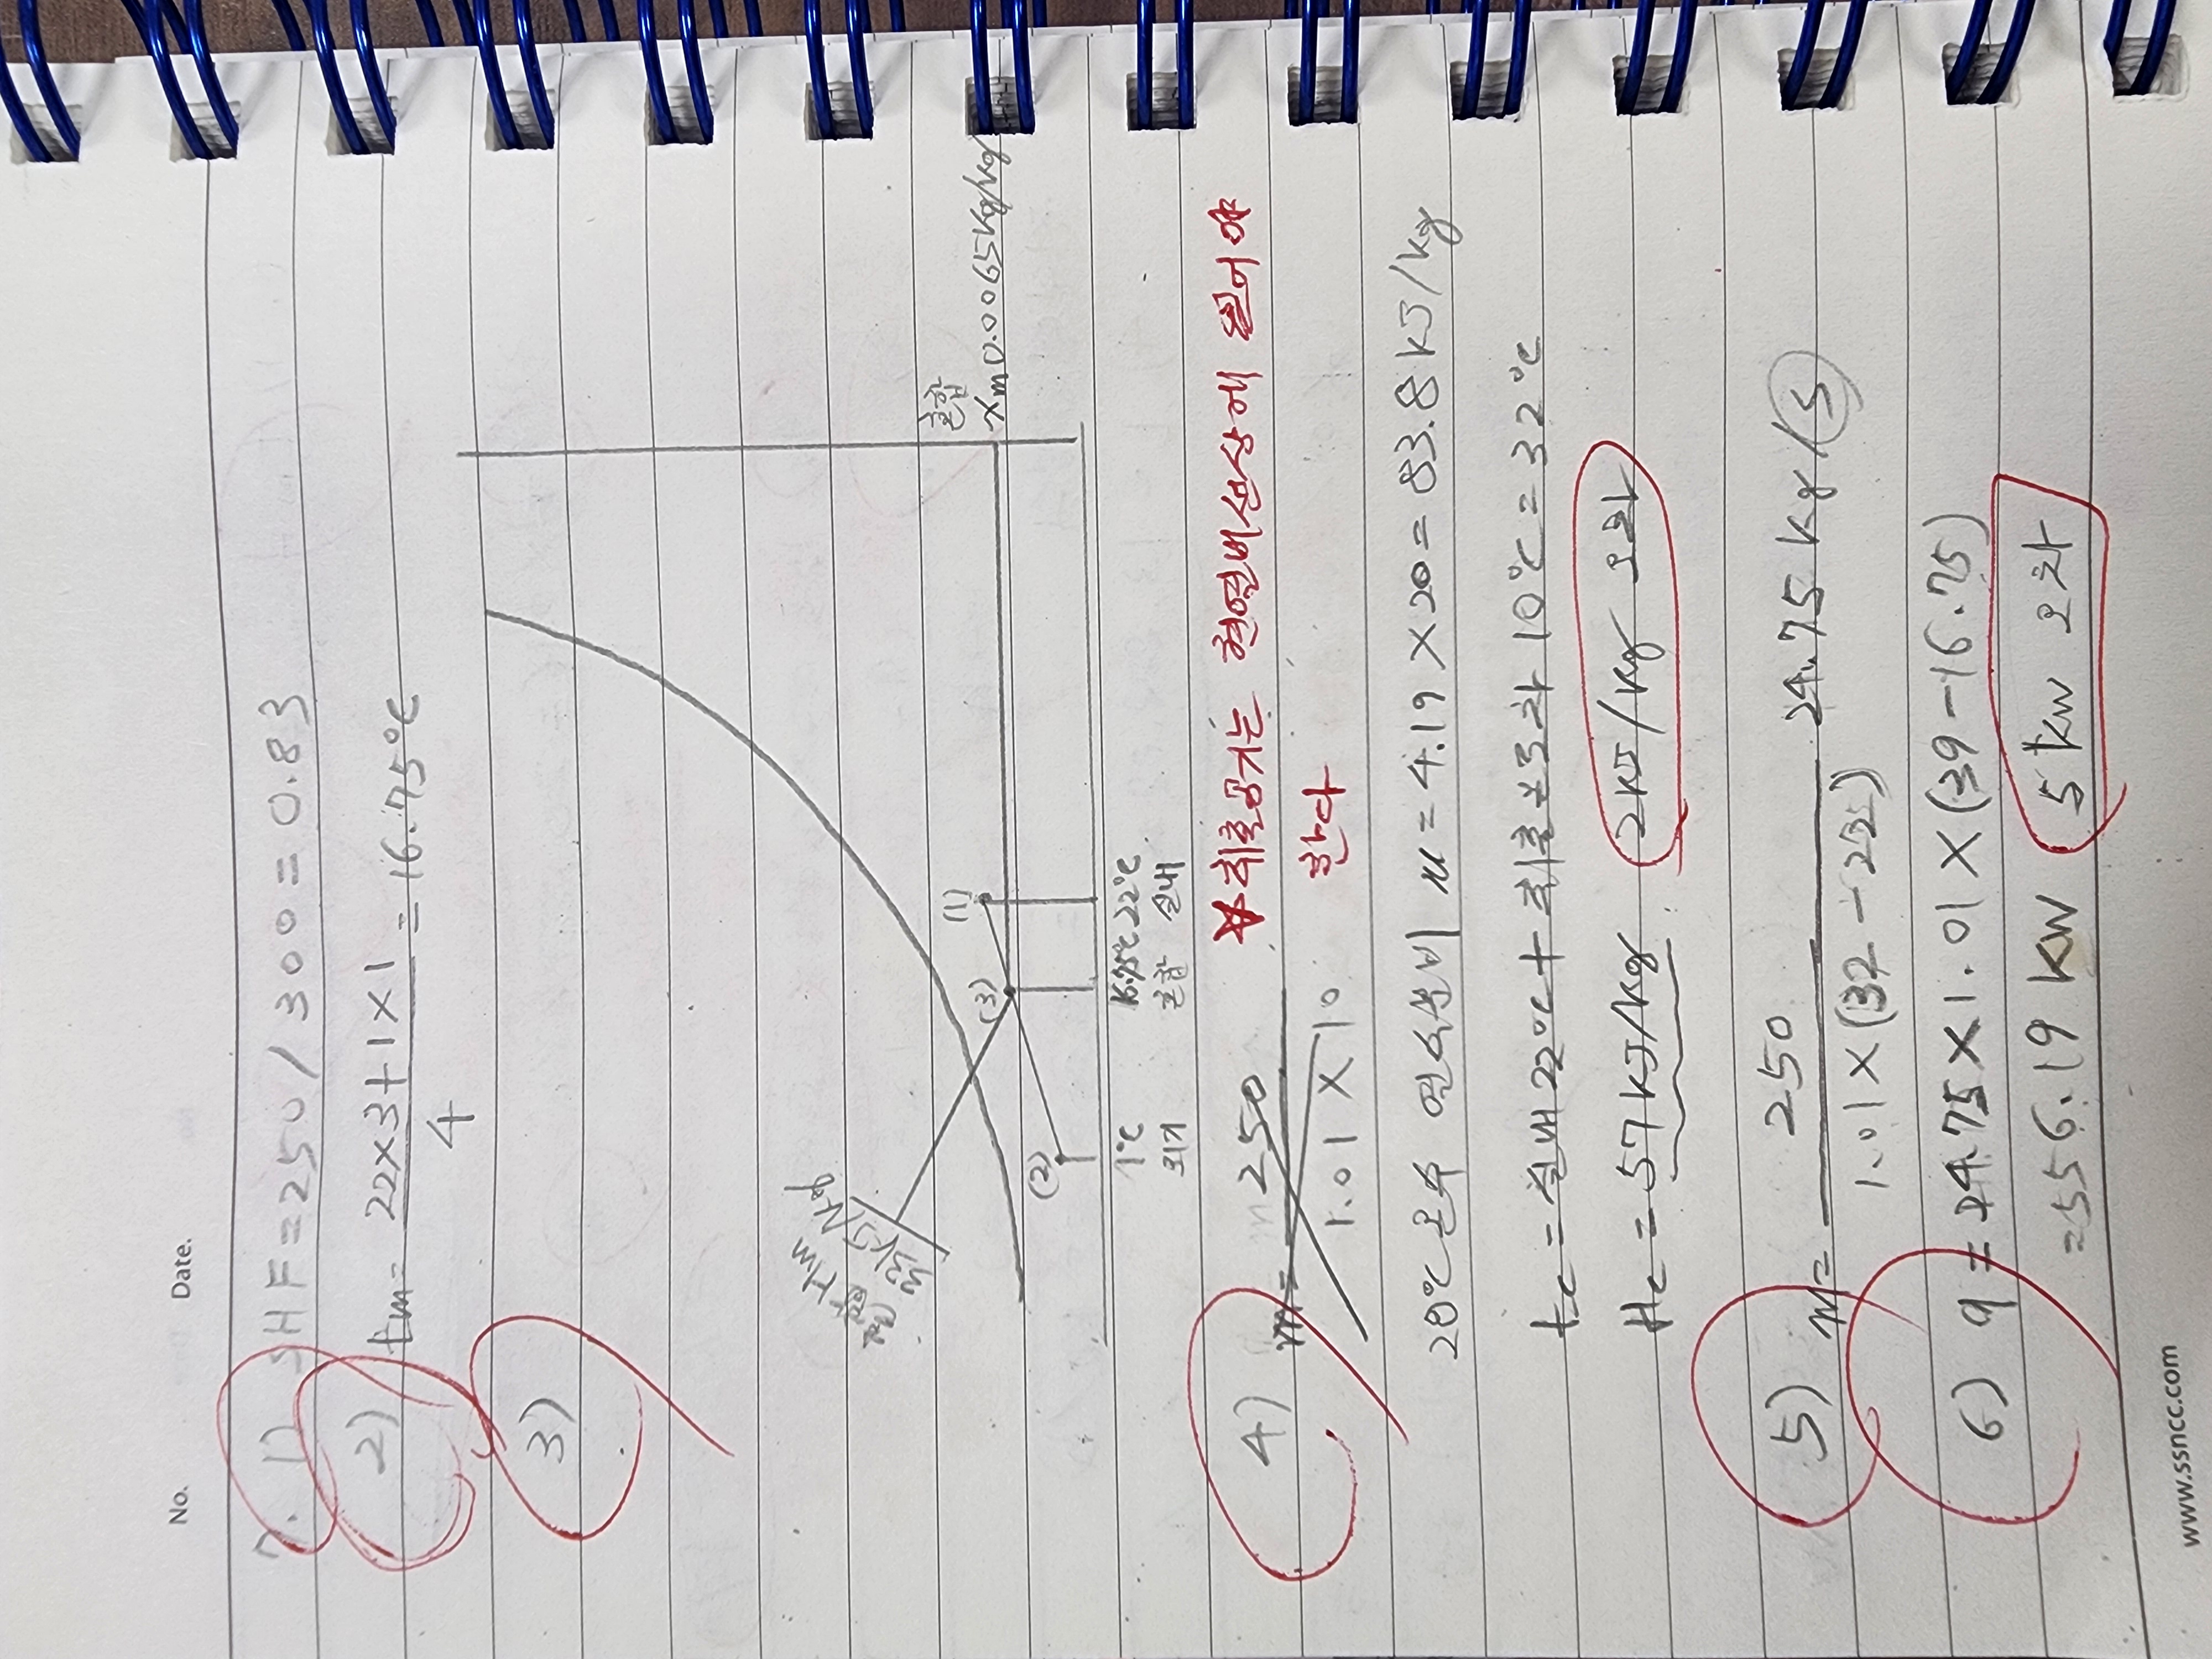 No. Date.
7. 1) SHF = 250 / 300 = 0.83
2) tm = 22×3+1×1 / 4 = 16.75℃
3)
혼합
Xm 0.0065kg/kg
(1)
(3)
(2)
1℃
외기
16.75℃
혼합
22℃
실내
4) m = 250 / 1.01×10
*취출공기는 현열비선상에 있어야
한다
20℃온수 열수분비 u = 4.19×20 = 83.8 kJ/kg
tc = 실내 22℃ + 취출온도차 10℃ = 32℃
Hc = 57kJ/kg 2kJ/kg 오차
5) m = 250 / 1.01×(32-22) = 24.75 kg/(s)
6) q = 24.75×1.01×(39-16.75)
= 556.19 kW 5kW 오차
www.ssncc.com